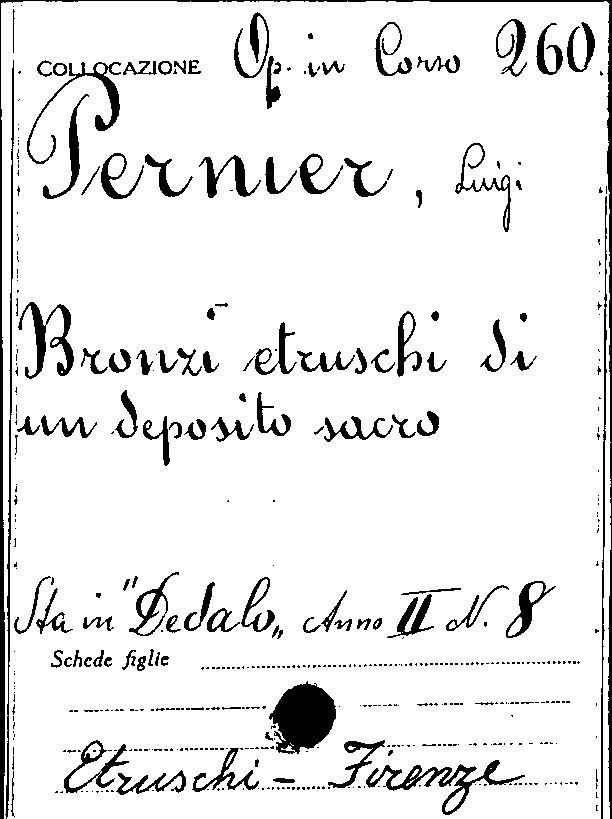 COLLOCAZIONE Op. in Corso 260
Pernier, Luigi
Bronzi etruschi di
un deposito sacro
Sta in "Dedalo„ Anno II N. 8
Schede figlie
Etruschi - Firenze